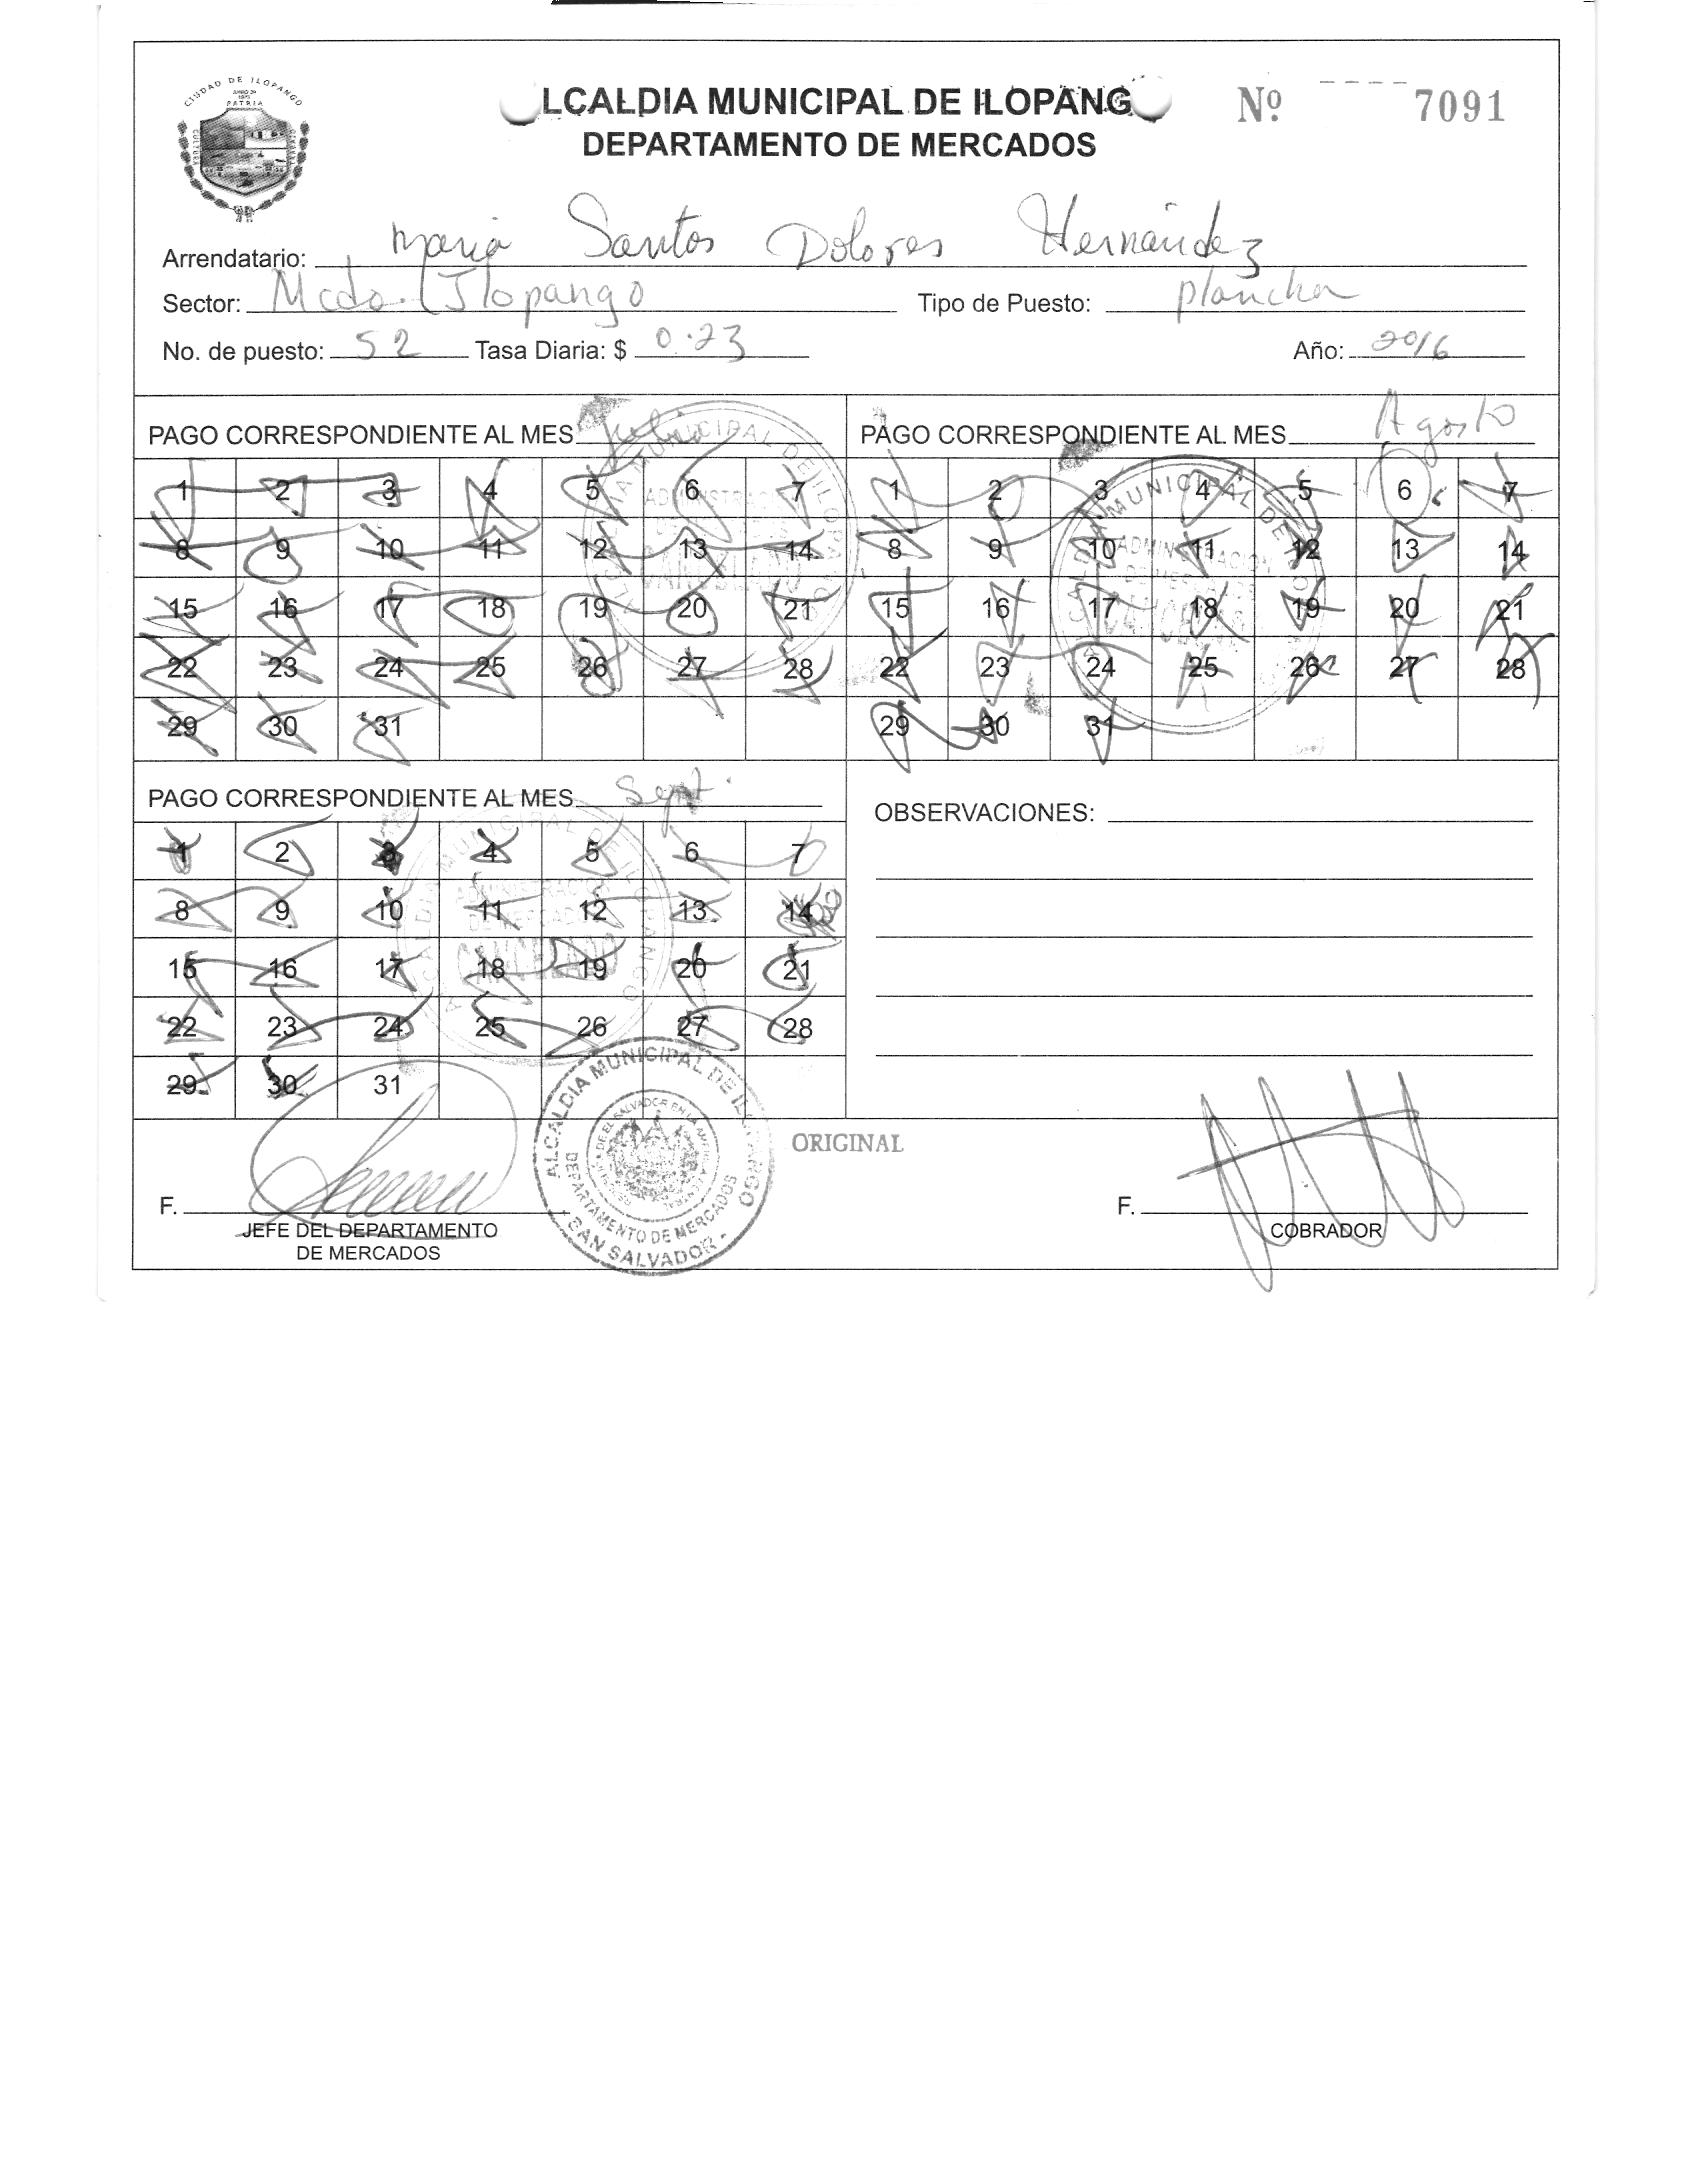 CIUDAD DE ILOPANGO
PATRIA
CULTURA
LCALDIA MUNICIPAL DE ILOPANG
Nº 7091
DEPARTAMENTO DE MERCADOS
Arrendatario: Maria Santos Dolores Hernández
Sector: Mcdo. Ilopango Tipo de Puesto: plancha
No. de puesto: 52 Tasa Diaria: $ 0.23 Año: 2016
PAGO CORRESPONDIENTE AL MES Julio
1 2 3 4 5 6 7
8 9 10 11 12 13 14
15 16 17 18 19 20 21
22 23 24 25 26 27 28
29 30 31
ALCALDIA MUNICIPAL DE ILOPANGO
ADMINISTRACION
CANCELADO
PAGO CORRESPONDIENTE AL MES Agosto
1 2 3 4 5 6 7
8 9 10 11 12 13 14
15 16 17 18 19 20 21
22 23 24 25 26 27 28
29 30 31
ALCALDIA MUNICIPAL DE ILOPANGO
ADMINISTRACION
DE MERCADOS
CANCELADO
PAGO CORRESPONDIENTE AL MES Sept.
1 2 3 4 5 6 7
8 9 10 11 12 13 14
15 16 17 18 19 20 21
22 23 24 25 26 27 28
29 30 31
ALCALDIA MUNICIPAL DE ILOPANGO
ADMINISTRACION
DE MERCADOS
CANCELADO
OBSERVACIONES:
ORIGINAL
ALCALDIA MUNICIPAL DE ILOPANGO
DEPARTAMENTO DE MERCADOS
SAN SALVADOR
F.
JEFE DEL DEPARTAMENTO
DE MERCADOS
F.
COBRADOR